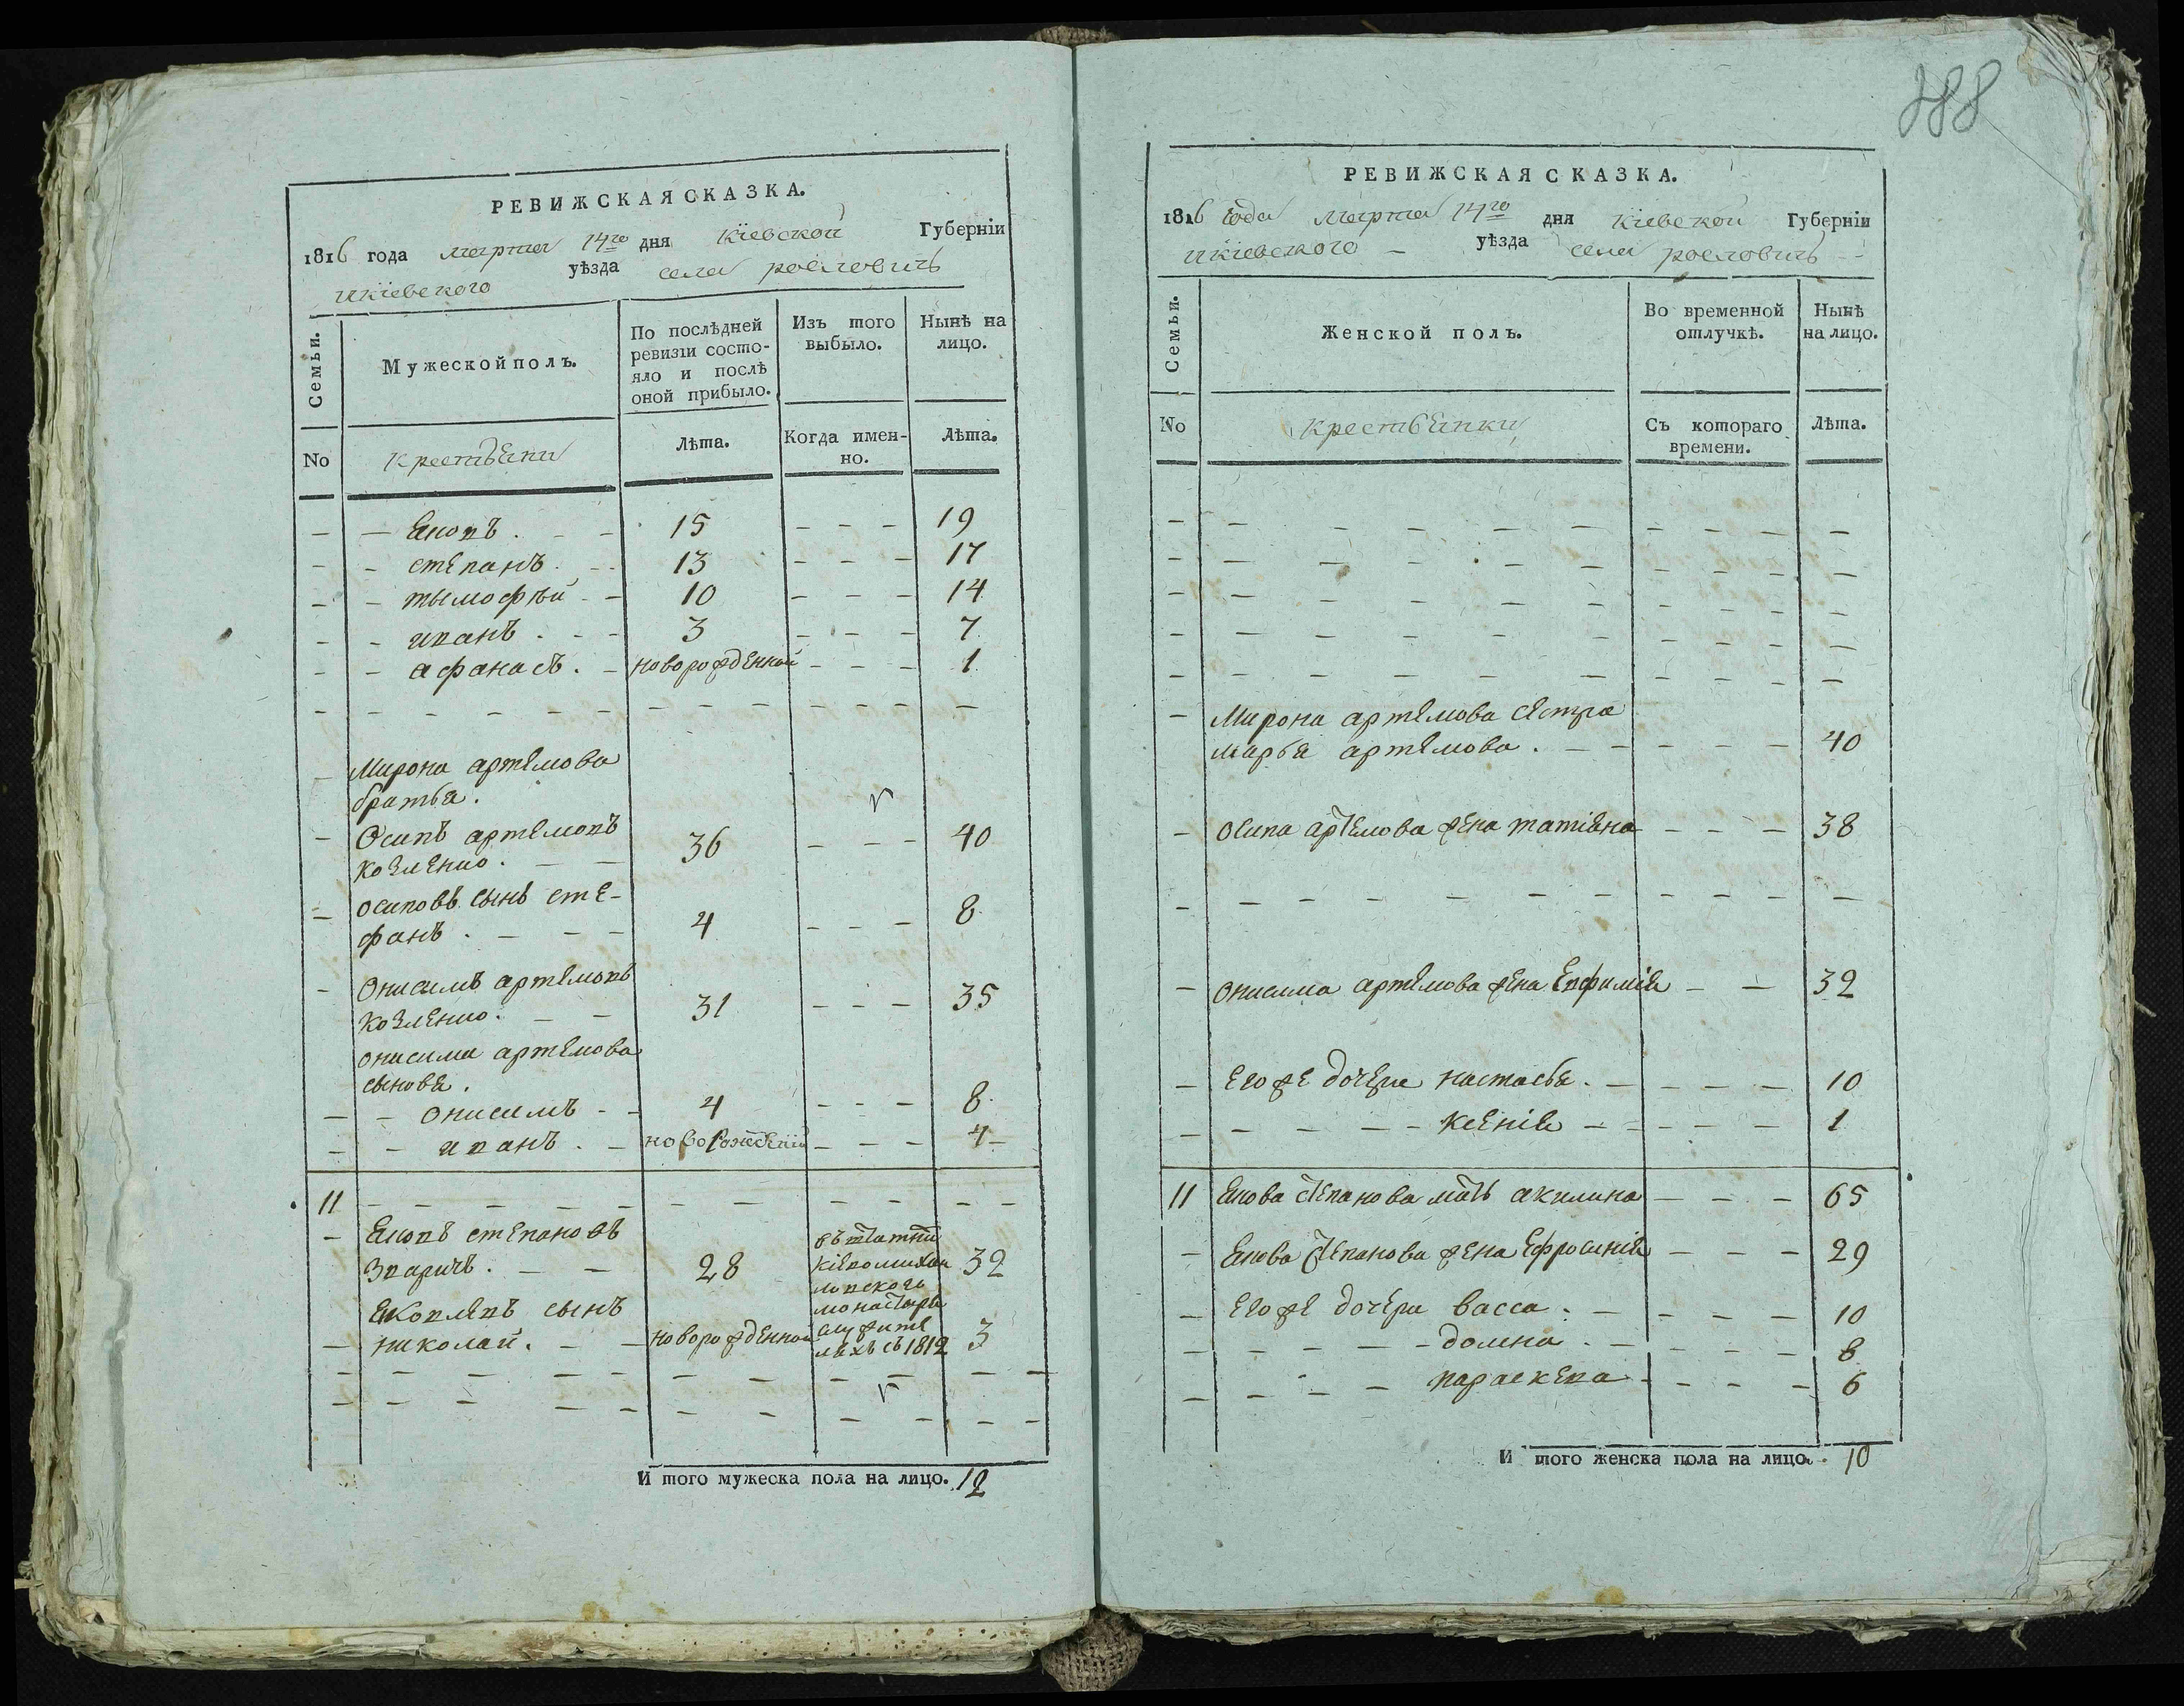 388
РЕВИЖСКАЯ СКАЗКА.
1816 года марта 14го дня кіевской Губерніи
икіевского уѣзда села рословичь
Семьи.
Мужеской полъ.
По послѣдней ревизіи состояло и послѣ оной прибыло.
Изъ того выбыло.
Нынѣ на лицо.
No
крестьяни
Лѣта.
Когда именно.
Лѣта.
— — Яковъ . - - 15 - - - 19
- - степанъ . - - 13 - - - 17
- - тымофѣй - - 10 - - - 14
- - иванъ . - - 3 - - - 7
- - афанасъ . - новорожденной - - - 1
Мирона артемова
братья .
- Осипъ артемовъ
козленко . — — 36 - - - 40
- осиповъ сынъ сте-
фанъ . - - - 4 - - - 8
- Онисимъ артемовъ
козленко . - - 31 - - - 35
онисима артемова
сыновя .
- - онисимъ - - 4 - - - 8
- - иванъ . - новорожденій - - - 4
11 - - - - - -
- Яковъ степановъ
Зваричъ . - - 28
въ штатнѣ
кіевомихай
ловского
монастыря
служите
ляхъ съ 1812
32
яковлевъ сынъ
- николай . - - новорожденной 3
И того мужеска пола на лицо. 12
РЕВИЖСКАЯ СКАЗКА.
1816 года марта 14го дня кіевской Губерніи
икіевского — уѣзда села рословичь
Семьи.
Женской полъ.
Во временной отлучкѣ.
Нынѣ на лицо.
No
крестьянки
Съ котораго времени.
Лѣта.
- Мирона артемова сестра
марья артемова . - - - - - 40
- осипа артемова жена татіяна - - - 38
- онисима артемова жена Евфимія - - 32
- его же дочера настасья . - - - - 10
- - - - - ксенія - - - - - 1
11 Якова степанова мать акилина - - - 65
- Якова степанова жена Ефросинія - - - 29
- его же дочера васса . - - - - 10
- - - - - домна . - - - - - 8
- - - - параскева - - - - 6
И того женска пола на лицо. 10